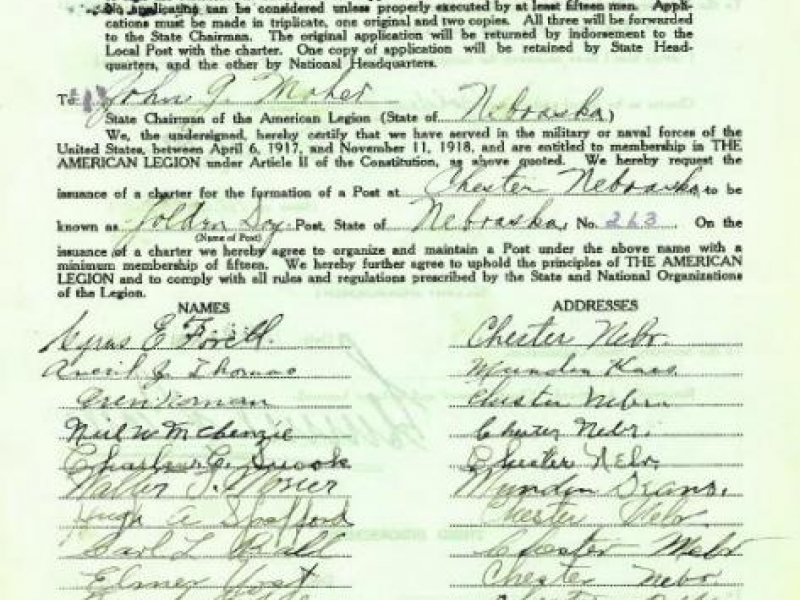 No application can be considered unless properly executed by at least fifteen men. Appli-
cations must be made in triplicate, one original and two copies. All three will be forwarded
to the State Chairman. The original application will be returned by indorsement to the
Local Post with the charter. One copy of application will be retained by State Head-
quarters, and the other by National Headquarters.
To John G. Maher
State Chairman of the American Legion (State of Nebraska)
We, the undersigned, hereby certify that we have served in the military or naval forces of the
United States, between April 6, 1917, and November 11, 1918, and are entitled to membership in THE
AMERICAN LEGION under Article II of the Constitution, as above quoted. We hereby request the
issuance of a charter for the formation of a Post at Chester Nebraska, to be
known as Post, State of Nebraska, No. 263 On the
(Name of Post)
issuance of a charter we hereby agree to organize and maintain a Post under the above name with a
minimum membership of fifteen. We hereby further agree to uphold the principles of THE AMERICAN
LEGION and to comply with all rules and regulations prescribed by the State and National Organizations
of the Legion.
NAMES ADDRESSES
Cyrus E. Chester Nebr.
Thomas Munden Kans.
Chester Nebr
Neil W McKenzie Chester Nebr.
Charles C. Snook Chester Nebr.
Walter Mosier Munden Kans.
Hugh A Spafford Chester Nebr.
Carl L Chester Nebr
Elmer Yost Chester Nebr.